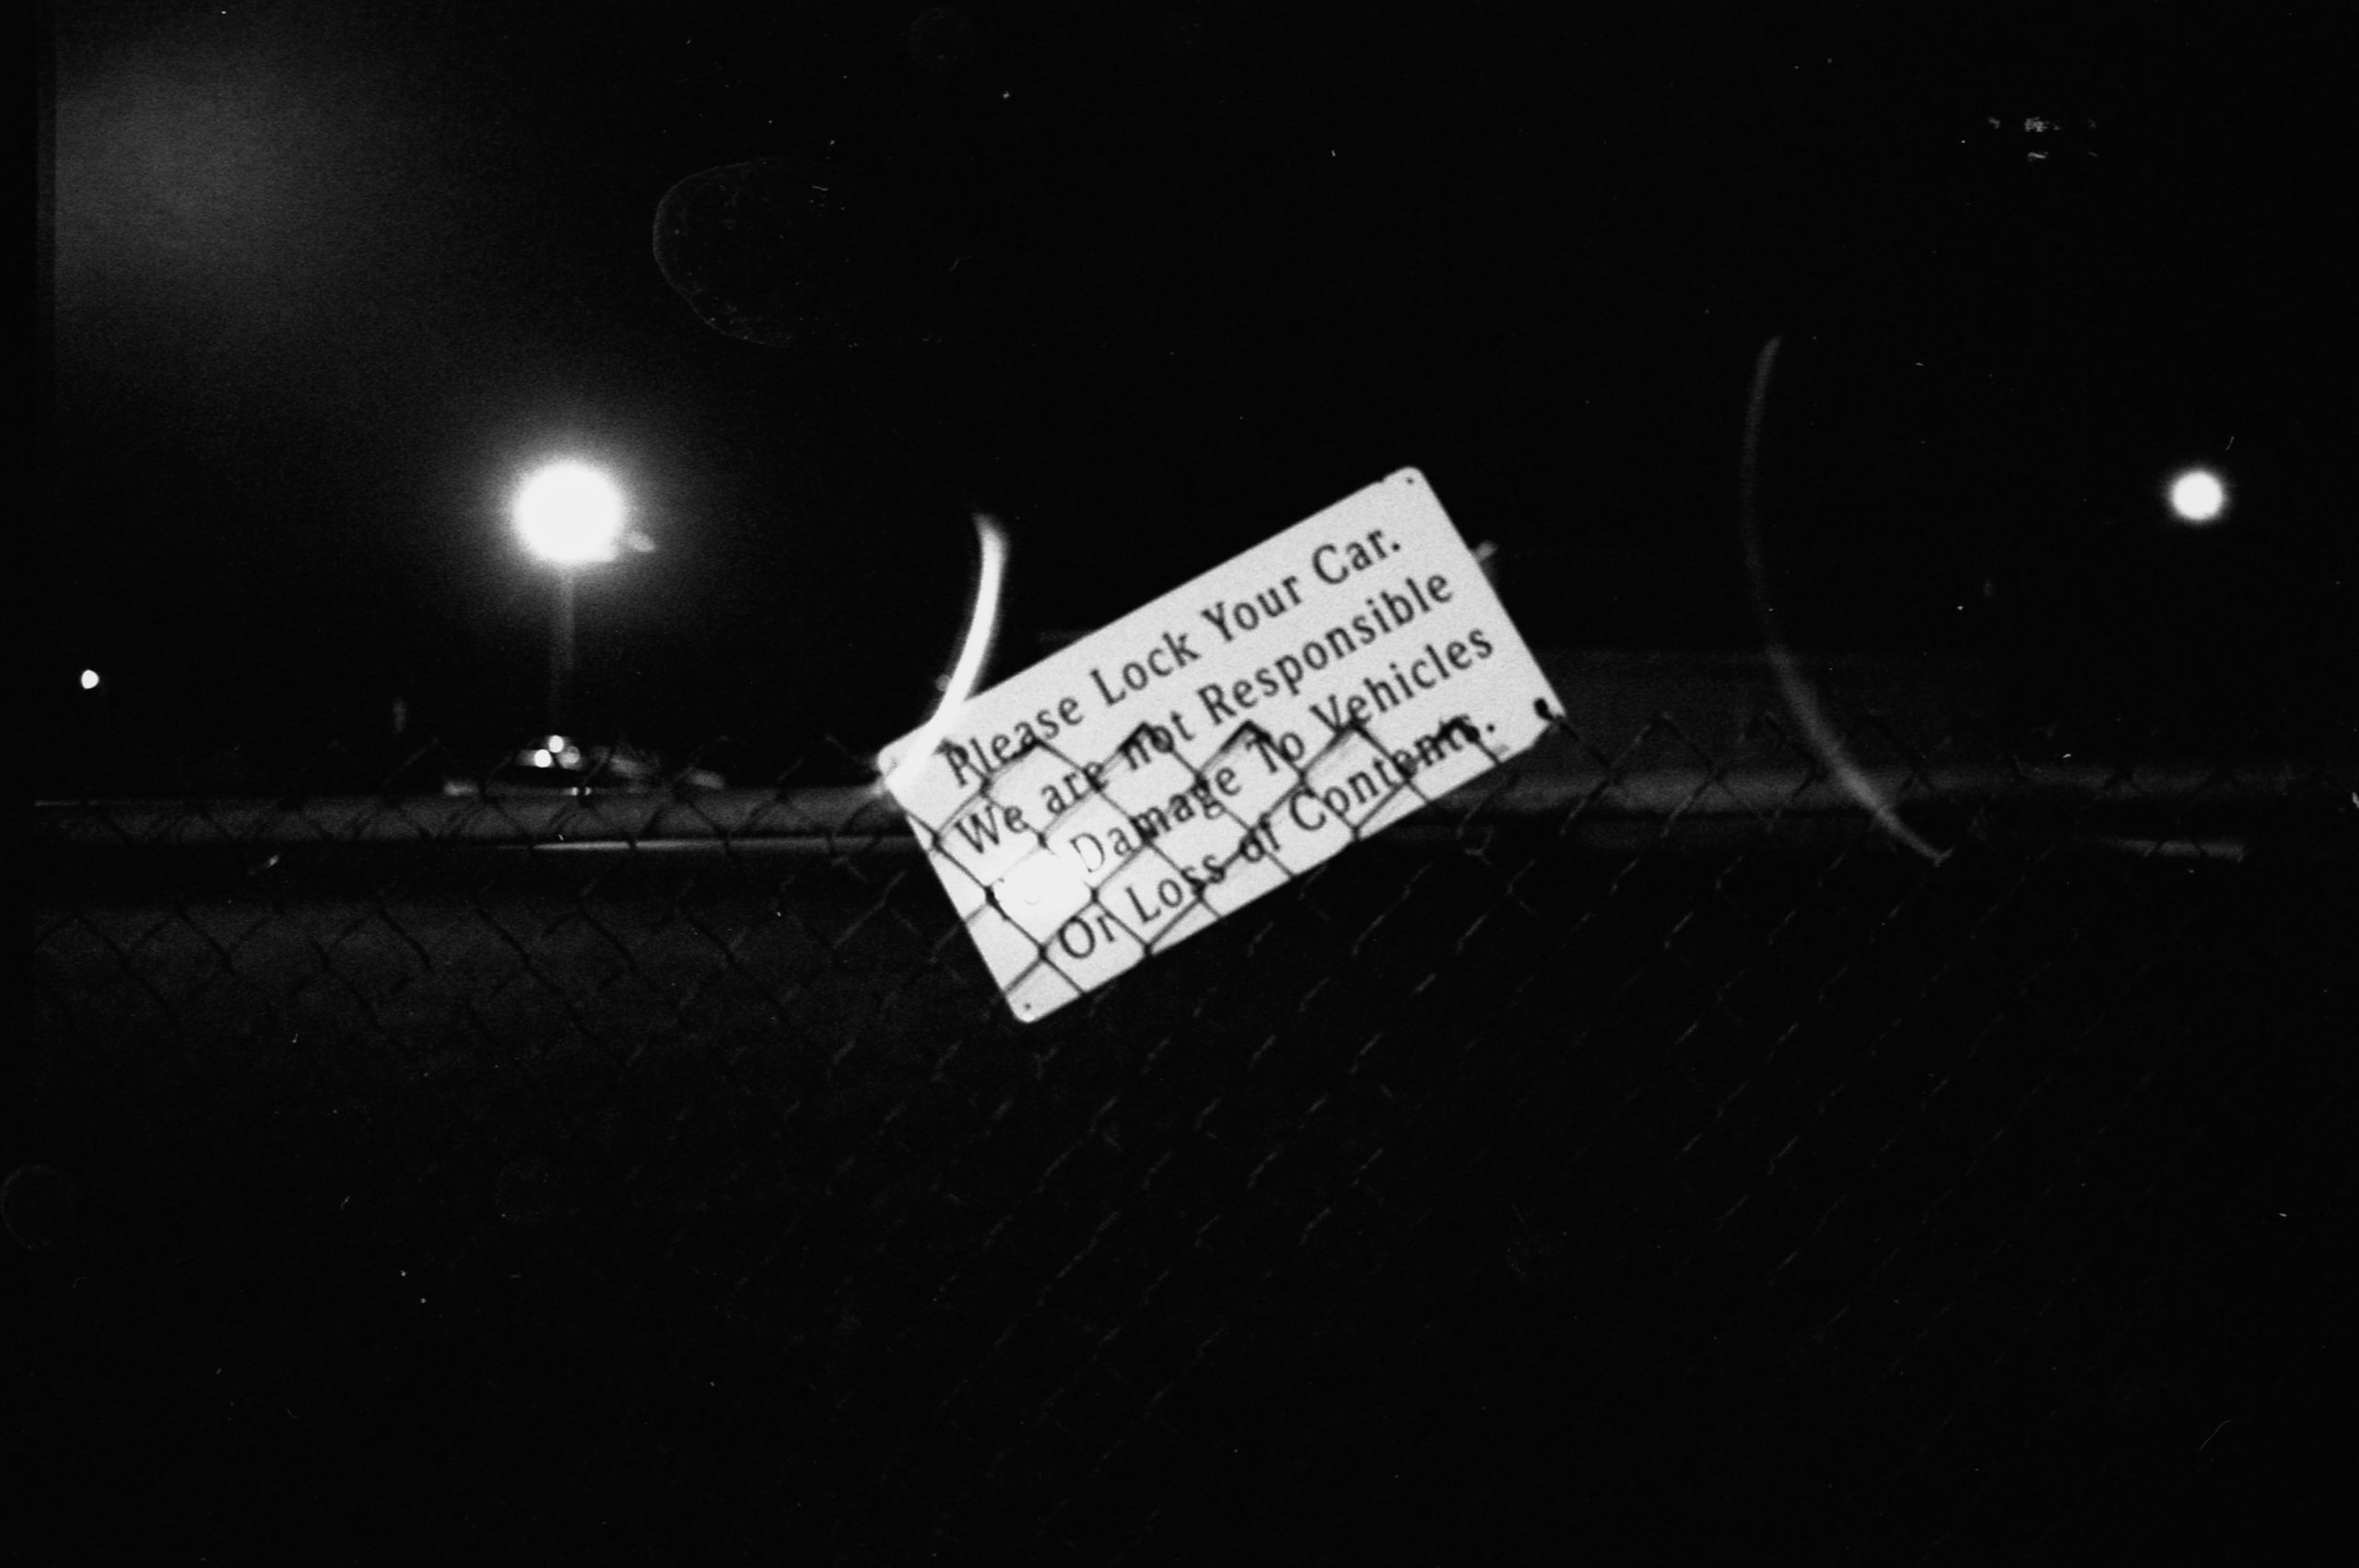 Please Lock Your Car.
We are not Responsible
Damage To Vehicles
Or Loss of Contents.